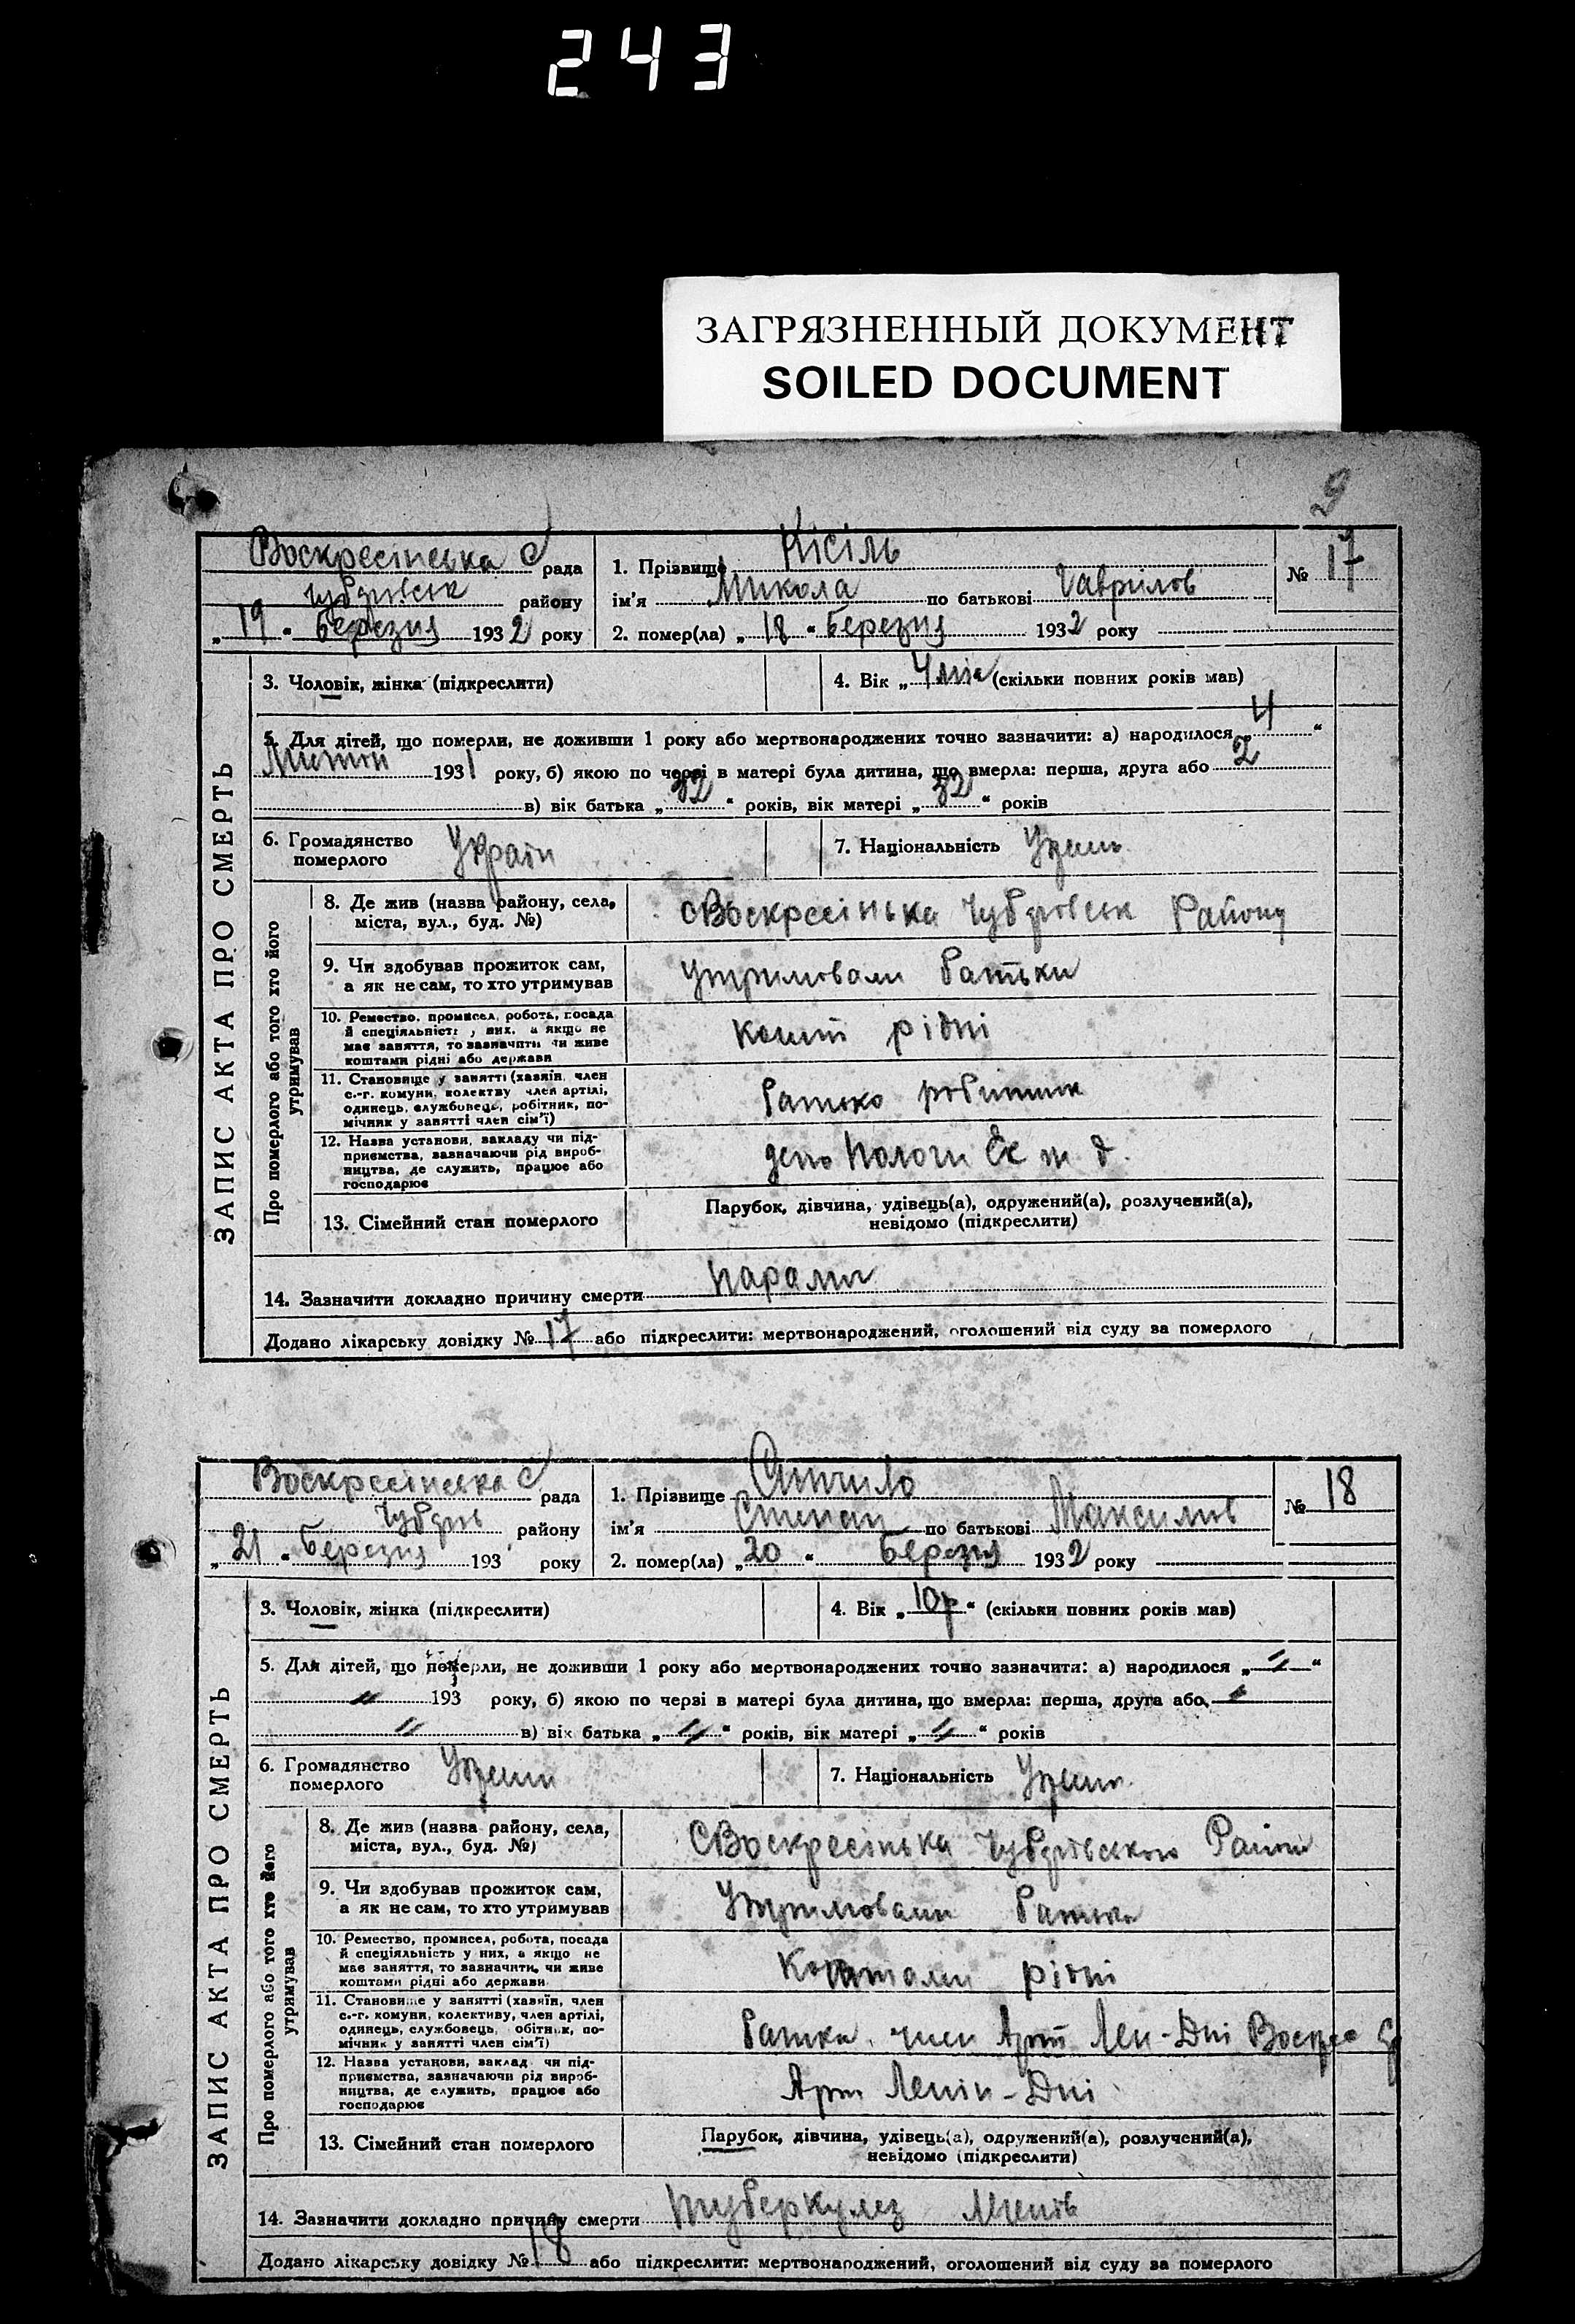 243
ЗАГРЯЗНЕННЫЙ ДОКУМЕНТ
SOILED DOCUMENT
9
Воскресінська С рада
Чубарівськ району
„19“ березня 1932 року
1. Прізвище Кісіль
ім'я Микола по батькові Гаврилов
2. помер(ла) „18“ березня 1932 року
№ 17
ЗАПИС АКТА ПРО СМЕРТЬ
3. Чоловік, жінка (підкреслити)
4. Вік „4 міс (скільки повних років мав)
5. Для дітей, що померли, не доживши 1 року або мертвонароджених точно зазначити: а) народилося 4“
1931 року, б) якою по черзі в матері була дитина, що вмерла: перша, друга або 2
в) вік батька „32“ років, вік матері „32“ років
6. Громадянство померлого Україн
7. Національність Украин
Про померлого або того хто його утримував
8. Де жив (назва району, села,
міста, вул., буд. №)
с Воскресінька Чубарівськ Району
9. Чи здобував прожиток сам,
а як не сам, то хто утримував
Утримовали батьки
10. Ремество, промисел, робота, посада
й спеціяльність у них, а якщо не
має заняття, то зазначити чи живе
коштами рідні або держави
Кошт рідні
11. Становище у занятті (хазяїн, член
с.-г. комуни, колективу член артілі,
одинець, службовець, робітник, по-
мічник у занятті член сім'ї)
батько робитник
12. Назва установи, закладу чи під-
приємства, зазначаючи рід вироб-
ництва, де служить, працює або
господарює
депо Пологи Єк
13. Сімейний стан померлого
Парубок, дівчина, удівець(а), одружений(а), розлучений(а),
невідомо (підкреслити)
14. Зазначити докладно причину смерти
Додано лікарську довідку № 17 або підкреслити: мертвонароджений, оголошений від суду за померлого
Воскресінська С рада
Чубарів району
„21“ березня 193 року
1. Прізвище
ім'я Степан по батькові Максимов
2. помер(ла) „20“ березня 1932 року
№ 18
ЗАПИС АКТА ПРО СМЕРТЬ
3. Чоловік, жінка (підкреслити)
4. Вік „10р“ (скільки повних років мав)
5. Для дітей, що померли, не доживши 1 року або мертвонароджених точно зазначити: а) народилося „〃“
〃 193 року, б) якою по черзі в матері була дитина, що вмерла: перша, друга або 〃
〃 в) вік батька „〃“ років, вік матері „〃“ років
6. Громадянство померлого Украин
7. Національність Украин
Про померлого або того хто його утримував
8. Де жив (назва району, села,
міста, вул., буд. №)
С Воскресінька Чубарівського Району
9. Чи здобував прожиток сам,
а як не сам, то хто утримував
Утримовали батьки
10. Ремество, промисел, робота, посада
й спеціяльність у них, а якщо не
має заняття, то зазначити, чи живе
коштами рідні або держави
Коштами рідні
11. Становище у занятті (хазяїн, член
с.-г. комуни, колективу, член артілі,
одинець, службовець, робітник, по-
мічник у занятті член сім'ї)
батька член Арт Лен-Дні Воскрес
12. Назва установи, закладу чи під-
приємства, зазначаючи рід вироб-
ництва, де служить, працює або
господарює
Арт Ленін-Дні
13. Сімейний стан померлого
Парубок, дівчина, удівець(а), одружений(а), розлучений(а),
невідомо (підкреслити)
14. Зазначити докладно причину смерти туберкулез
Додано лікарську довідку № 18 або підкреслити: мертвонароджений, оголошений від суду за померлого